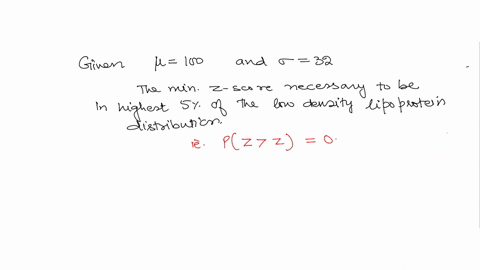 Given μ = 100 and σ = 32
The min. z-score necessary to be
in highest 5% of the low density lipoprotein
distribution.
ie. P(Z > z) = 0.